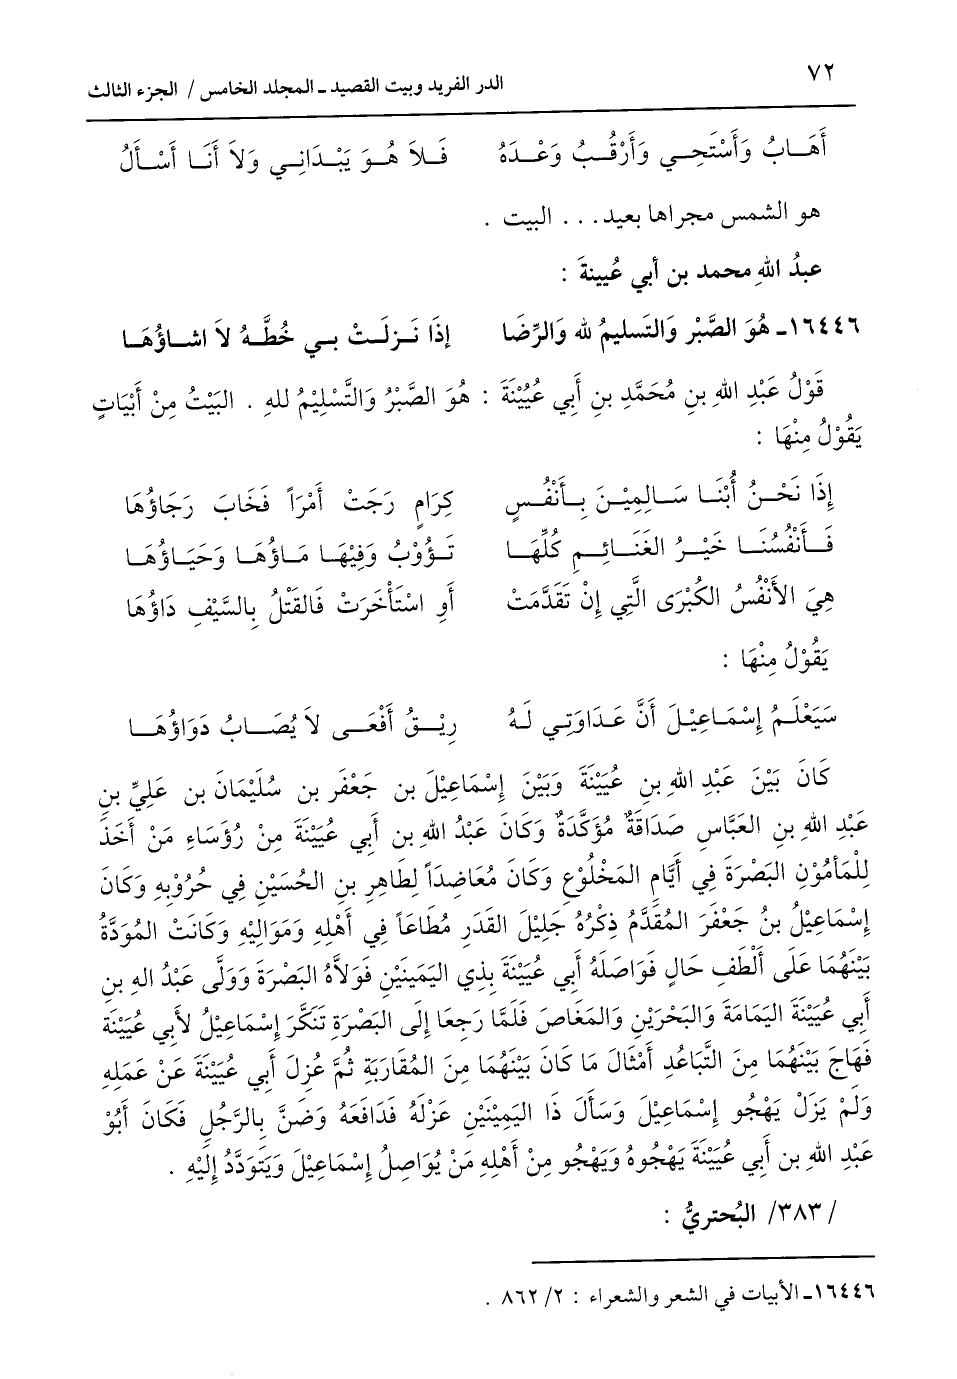 ٧٢
الدر الفريد وبيت القصيد ـ المجلد الخامس / الجزء الثالث
أَهَـابُ وَأَسْتَحِـي وَأَرْقُـبُ وَعْـدَهُ فَـلاَ هُـوَ يَبْـدَانِي وَلاَ أَنَـا أَسْـأَلُ
هو الشمس مجراها بعيد... البيت .
عبدُ اللهِ محمد بن أبي عُيينةَ :
١٦٤٤٦ـ هُوَ الصَّبْر وَالتَسليمُ لله وَالرِّضَا إِذَا نَـزلَـتْ بـي خُطَّـهُ لاَ اشـاؤُهَـا
قَوْلُ عَبْدِ اللهِ بنِ مُحَمَّدِ بنِ أَبِي عُيَيْنَةَ : هُوَ الصَّبْرُ وَالتَّسْلِيْمُ للهِ . البَيْتُ مِنْ أَبْيَاتٍ
يَقُوْلُ مِنْهَا :
إِذَا نَحْـنُ أُبْنَـا سَـالِمِيْـنَ بِـأَنْفُـسٍ كِرَامٍ رَجَتْ أَمْرَاً فَخَابَ رَجَاؤُهَا
فَـأَنْفُسُنَـا خَيْـرُ الغَنَـائِـمِ كُلِّهَـا تَـؤُوْبُ وَفِيْهَـا مَـاؤُهَـا وَحَيَـاؤُهَـا
هِيَ الأَنْفُسُ الكُبْرَى الَّتِي إِنْ تَقَدَّمَتْ أَوِ اسْتَأْخَرَتْ فَالقَتْلُ بِالسَّيْفِ دَاؤُهَا
يَقُوْلُ مِنْهَا :
سَيَعْلَـمُ إِسْمَـاعِيْلَ أَنَّ عَـدَاوَتِي لَـهُ رِيْـقُ أَفْعَـى لاَ يُصَـابُ دَوَاؤُهَـا
كَانَ بَيْنَ عَبْدِ اللهِ بنِ عُيَيْنَةَ وَبَيْنَ إِسْمَاعِيْلَ بنِ جَعْفَرِ بنِ سُلَيْمَانَ بن عَلِيِّ بنِ
عَبْدِ اللهِ بنِ العَبَّاسِ صَدَاقَةٌ مُؤَكَّدَةٌ وَكَانَ عَبْدُ اللهِ بنِ أَبِي عُيَيْنَةَ مِنْ رُؤَسَاءِ مَنْ أَخَذَ
لِلْمَأمُوْنِ البَصْرَةَ فِي أَيَّامِ المَخْلُوْعِ وَكَانَ مُعَاضِدَاً لِطَاهِرِ بنِ الحُسَيْنِ فِي حُرُوْبِهِ وَكَانَ
إِسْمَاعِيْلُ بنُ جَعْفَرَ المُقَدَّمُ ذِكْرُهُ جَلِيْلَ القَدَرِ مُطَاعَاً فِي أَهْلِهِ وَمَوَالِيْهِ وَكَانَتْ المُوَدَّةُ
بَيْنَهُمَا عَلَى أَلْطَفِ حَالٍ فَوَاصَلَهُ أَبِي عُيَيْنَةَ بِذِي اليَمَينَيْنِ فَوَلاَّهُ البَصْرَةَ وَوَلَّى عَبْدُ اله بنِ
أَبِي عُيَيْنَةَ اليَمَامَةَ وَالبَحْرَيْنِ وَالمَغَاصَ فَلَمَّا رَجعَا إِلَى البَصْرَةِ تَنَكَّرَ إِسْمَاعِيْلُ لأَبِي عُيَيْنَةَ
فَهَاجَ بَيْنَهُمَا مِنَ التَّبَاعُدِ أَمْثَالَ مَا كَانَ بَيْنَهُمَا مِنَ المُقَارَبَةِ ثُمَّ عُزِلَ أَبِي عُيَيْنَةَ عَنْ عَمَلِهِ
وَلَمْ يَزَلْ يَهْجُو إِسْمَاعِيْلَ وَسَأَلَ ذَا اليَمِيْنَيْنِ عَزْلَهُ فَدَافَعَهُ وَضَنَّ بِالرَّجُلِ فَكَانَ أَبُوْ
عَبْدِ اللهِ بن أَبِي عُيَيْنَةَ يَهْجُوهُ وَيَهْجُو مِنْ أَهْلِهِ مَنْ يُوَاصِلُ إِسْمَاعِيْلَ وَيَتَوَدَّدُ إِلَيْهِ .
/٣٨٣/ البُحتريُّ :
١٦٤٤٦ـ الأبيات في الشعر والشعراء : ٢/ ٨٦٢ .